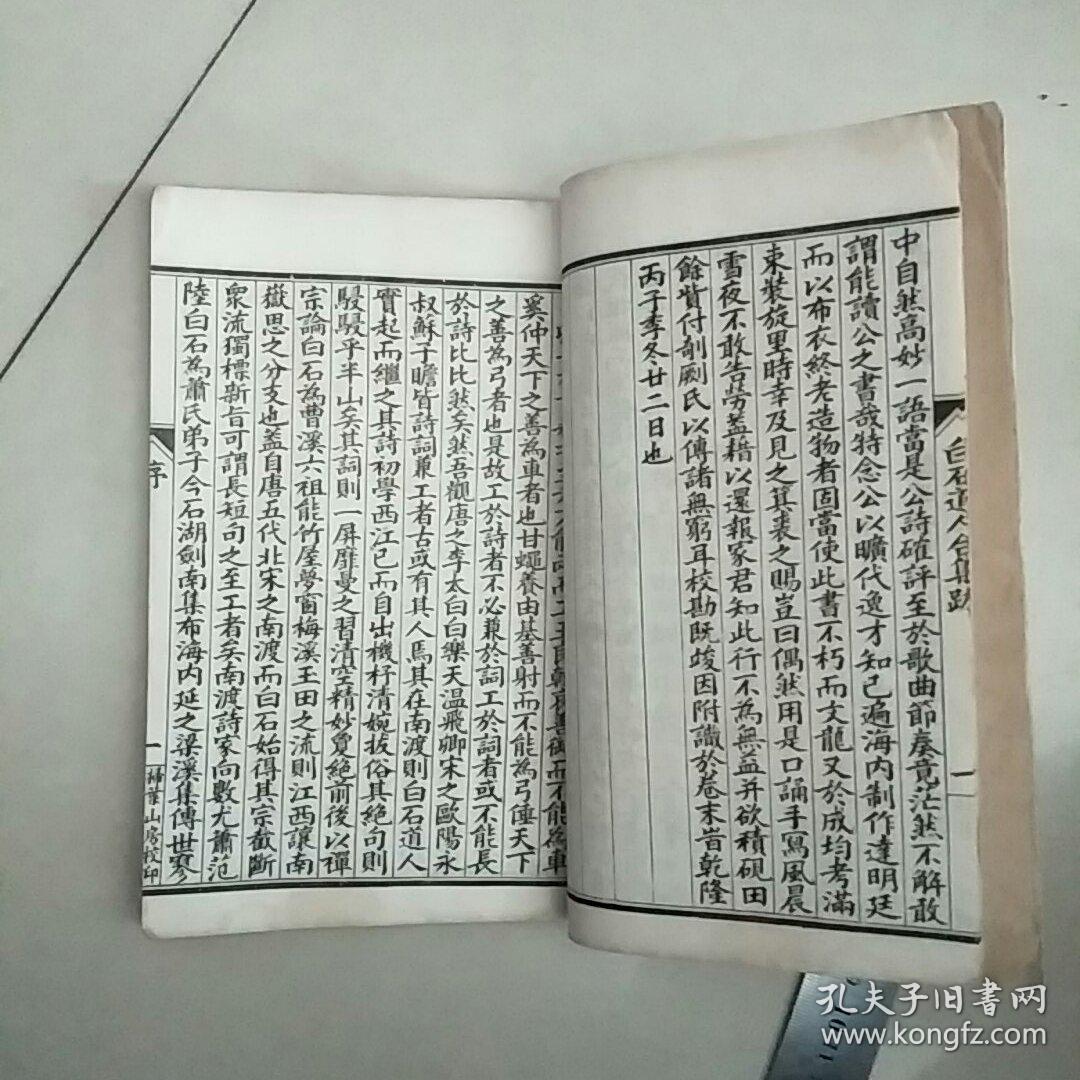 中自然高妙一語當是公詩確評至於歌曲節奏竟茫然不解敢
謂能讀公之書哉特念公以曠代逸才知己遍海内制作達明廷
而以布衣終老造物者固當使此書不朽而文龍又於成均考滿
束裝旋里時幸及見之箕裘之賜豈曰偶然用是口誦手寫風晨
雪夜不敢告勞蓋藉以還報家君知此行不為無益并欲積硯田
餘貲付剞劂氏以傳諸無窮耳校勘既竣因附識於卷末旹乾隆
丙子季冬廿二日也
白石道人合集跋
一
奚仲天下之善為車者也甘蠅養由基善射而不能為弓倕天下
之善為弓者也是故工於詩者不必兼於詞工於詞者或不能長
於詩比比然矣然吾觀唐之李太白白樂天温飛卿宋之歐陽永
叔蘇子瞻皆詩詞兼工者古或有其人焉其在南渡則白石道人
實起而繼之其詩初學西江已而自出機杼清婉拔俗其絕句則
駸駸乎半山矣其詞則一屏靡曼之習清空精妙敻絕前後以禪
宗論白石為曹溪六祖能竹屋夢窗梅溪玉田之流則江西讓南
嶽思之分支也蓋自唐五代北宋之南渡而白石始得其宗截斷
衆流獨標新旨可謂長短句之至工者矣南渡詩家向數尤蕭范
陸白石為蕭氏弟子今石湖劍南集布海内延之梁溪集傳世寥
序
一
掃葉山房校印
孔夫子旧书网
www.kongfz.com